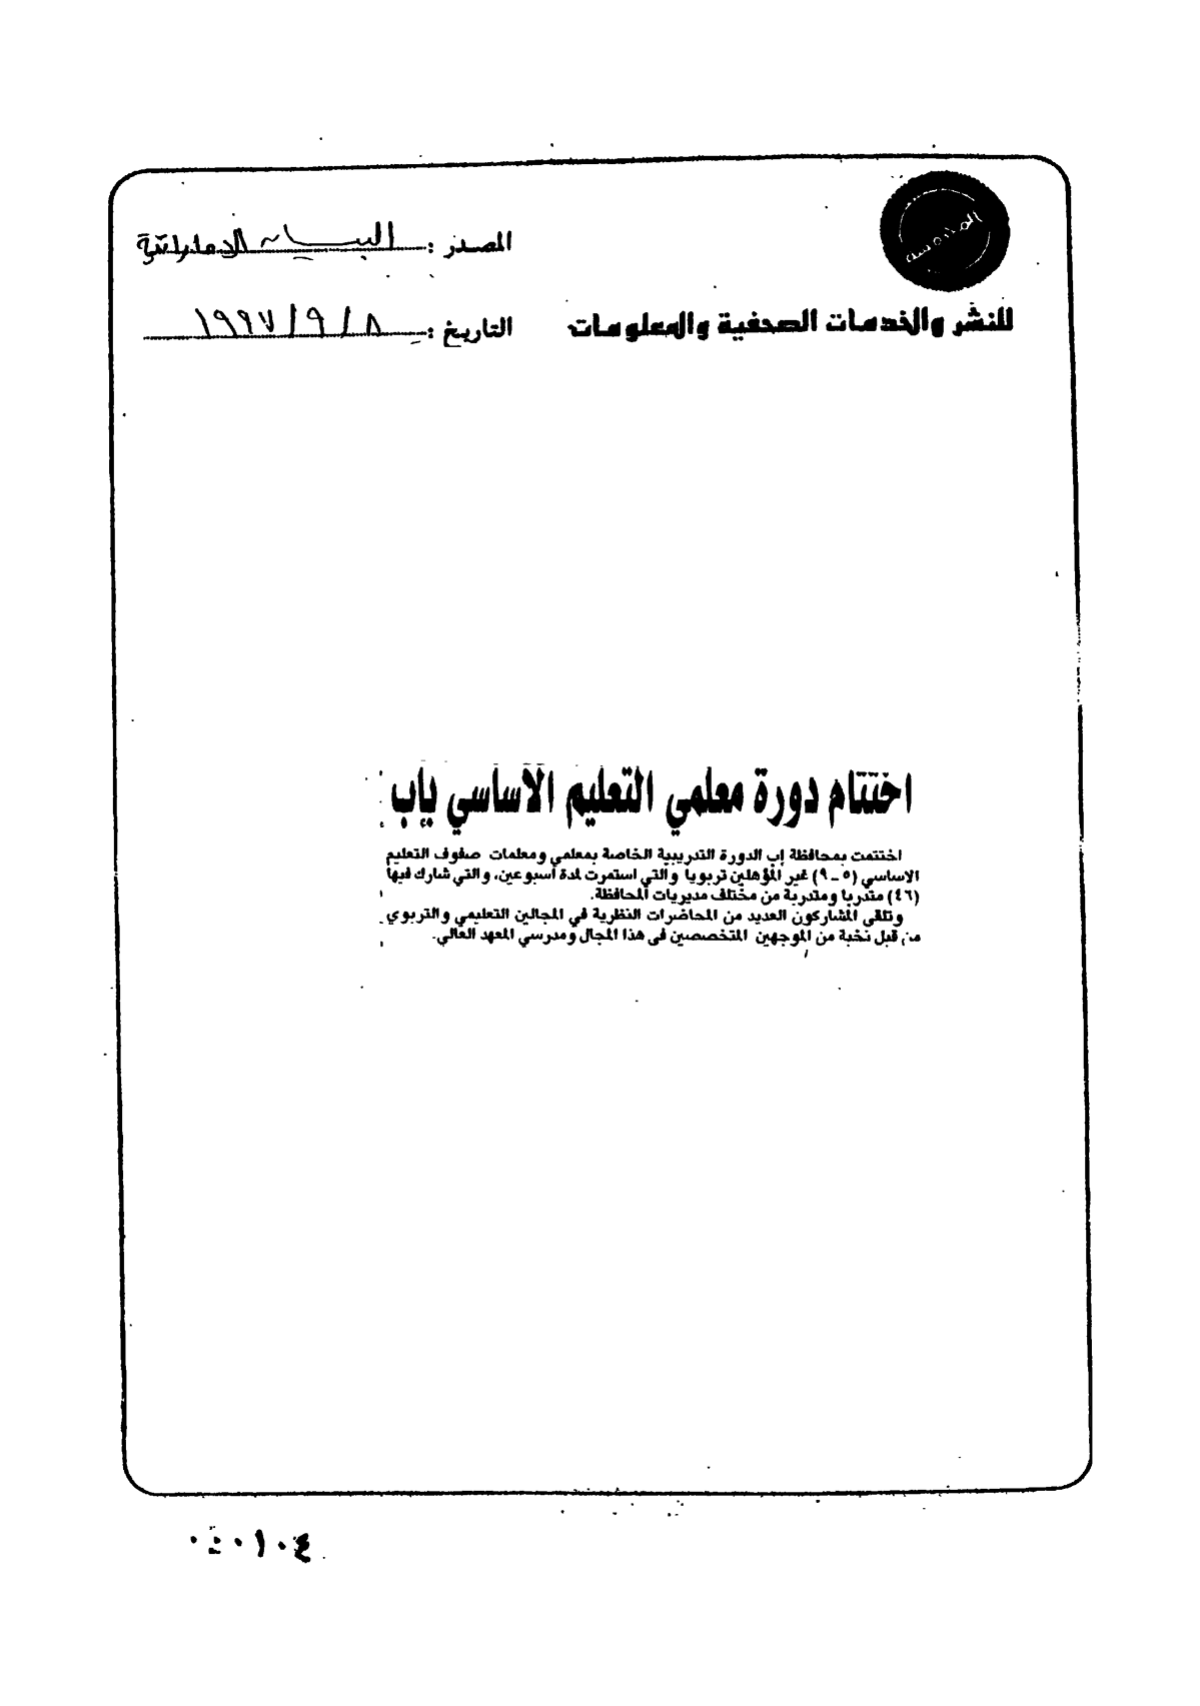 المصدر : البيان الإماراتية
للنشر والخدمات الصحفية والمعلومات
التاريخ : ٨ / ٩ / ١٩٩٧
اختتام دورة معلمي التعليم الأساسي بإب
اختتمت بمحافظة إب الدورة التدريبية الخاصة بمعلمي ومعلمات صفوف التعليم
الاساسي (٥ - ٩) غير المؤهلين تربويا والتي استمرت لمدة أسبوعين، والتي شارك فيها
(٤٦) متدربا ومتدربة من مختلف مديريات المحافظة.
وتلقى المشاركون العديد من المحاضرات النظرية في المجالين التعليمي والتربوي
من قبل نخبة من الموجهين المتخصصين في هذا المجال ومدرسي المعهد العالي.